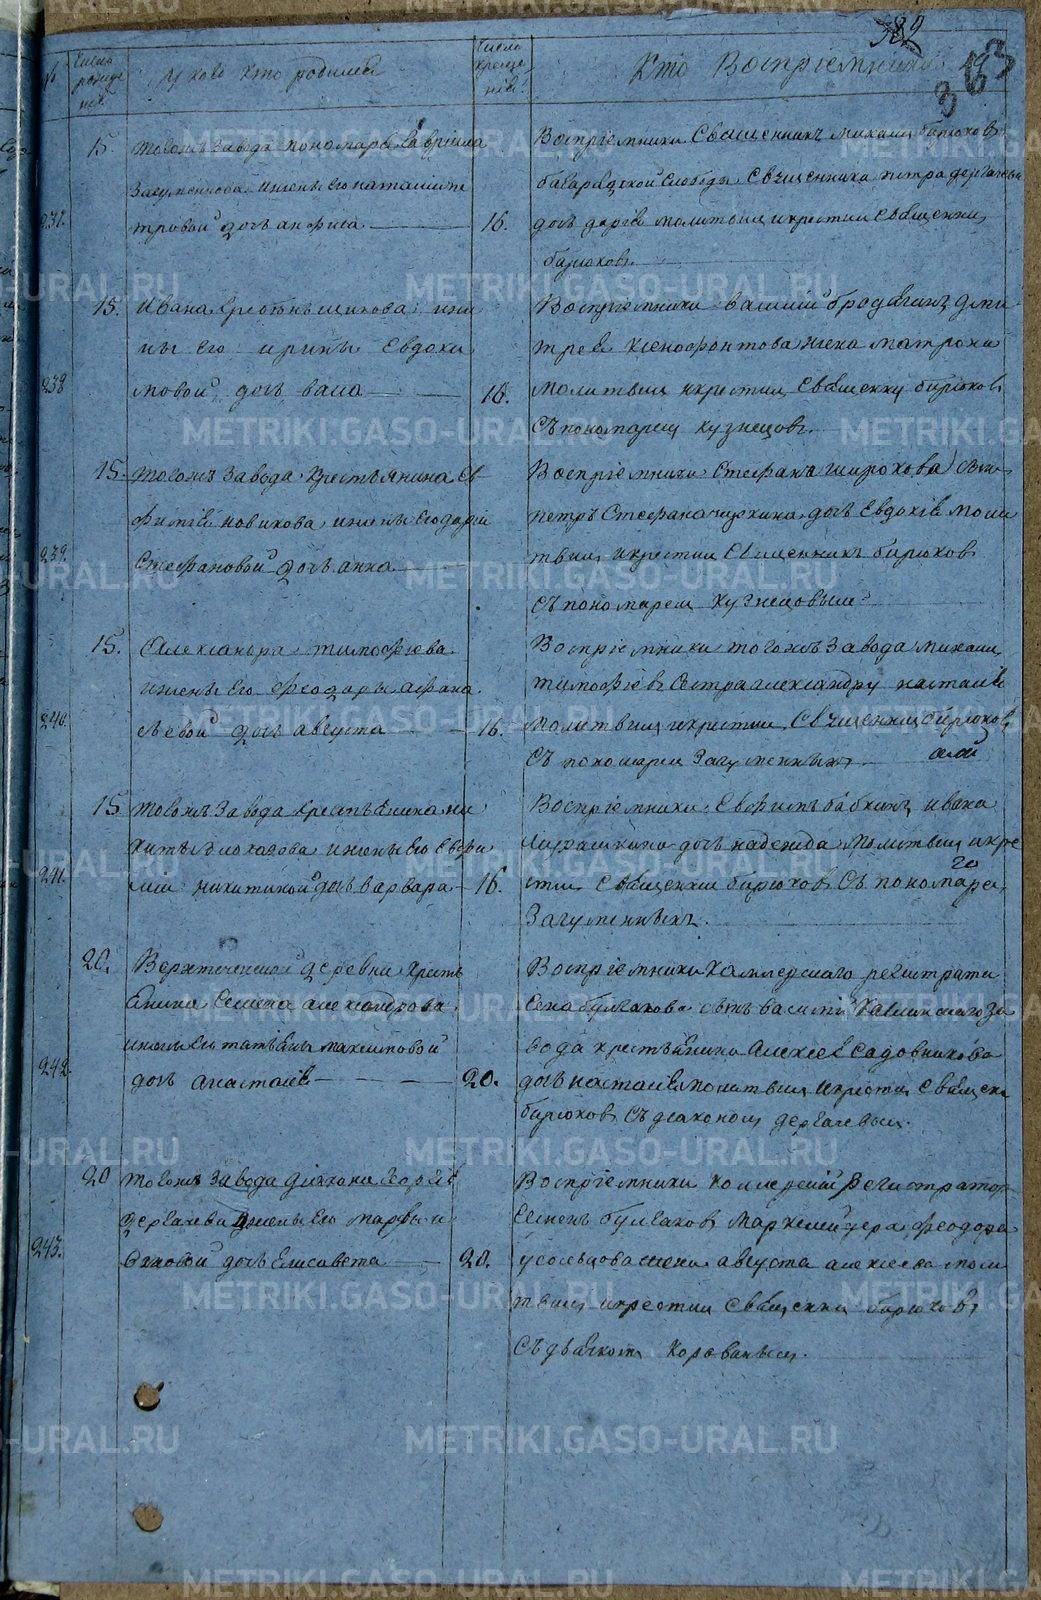 382
383
№
Число рожде нія
У кого кто родился
Число креще нія
Кто Воспріемники
237.
15.
тогожъ завода пономаря гавріила
Загуменнова и жены его наталіи пе
тровой дочь анфиса
16.
Воспріемники Священникъ михаилъ бирюковъ
багарядской слободы Священника петра дергачева
дочь дарія молитвилъ и крестилъ Священникъ
бирюковъ.
238
15.
Ивана и же
ны его ирины Евдоки
мовой дочь васса
16.
Воспріемники василій бродягинъ дми
трея ксенофонтова жена матрона
молитвилъ и крестилъ Священникъ бирюковъ
Съ пономаремъ кузнецовъ.
239.
15.
тогожъ завода крестьянина Ев
фимія новикова и жены его даріи
Стефановой дочь анна
Воспріемники Стефанъ широковъ
петръ Стефана дочь Евдокія моли
твилъ и крестилъ Священникъ бирюковъ
Съ пономаремъ Кузнецовымъ
240.
15.
Александра тимофѣева
и жены его феодоры афана
сьевой дочь августа
16.
Воспріемники тогожъ завода михаилъ
тимофѣевъ Сестра александру настасія
молитвилъ и крестилъ Священникъ бирюковъ
Съ пономаремъ Загуменныхъ
241.
15
тогожъ завода крестьянина ни
киты и жены его Евфи
міи никитиной дочь варвара
16.
Воспріемники Евфимъ бабкинъ ивана
дочь надежда молитвилъ и кре
стилъ Священникъ бирюковъ Съ пономаре
Загуменныхъ.
242.
20.
Верхтеченской деревни кресть
янина Семена александрова
и жены его татьяны максимовой
дочь анастасія
20.
Воспріемники Коллежскаго регистрато
Сена булгакова сынъ василій Каслинскаго за
вода крестьянина Алексея Садовникова
дочь настасія молитвилъ и крестилъ Священни
бирюковъ Съ діакономъ дергачевымъ.
243.
20
тогожъ завода діакона
дергачева и жены его марѳы и
дочь Елисавета
20.
Воспріемники коллежскій Регистраторъ
Семенъ булгаковъ маркшейдера феодора
усольцова жена августа алексеева моли
твилъ и крестилъ Священникъ бирюковъ
Съ дьячкомъ Корованымъ.
METRIKI.GASO-URAL.RU